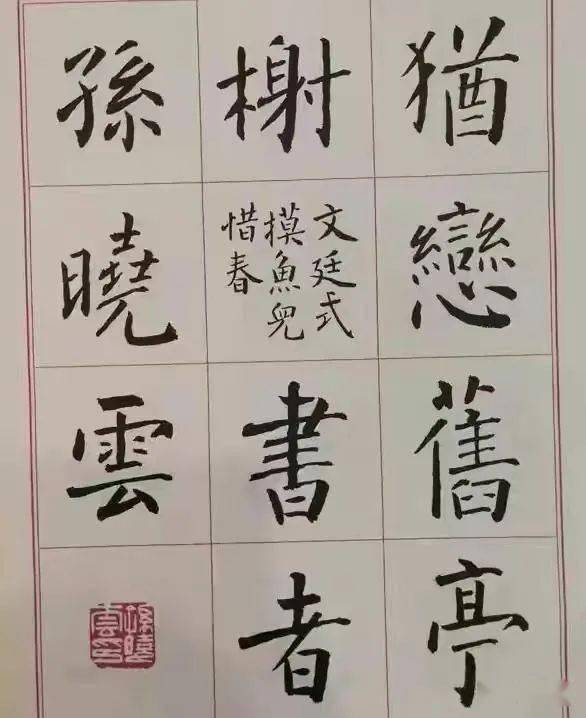 猶戀舊亭
榭
文廷式
摸魚兒
惜春
書者
孫曉雲
孫曉
雲印